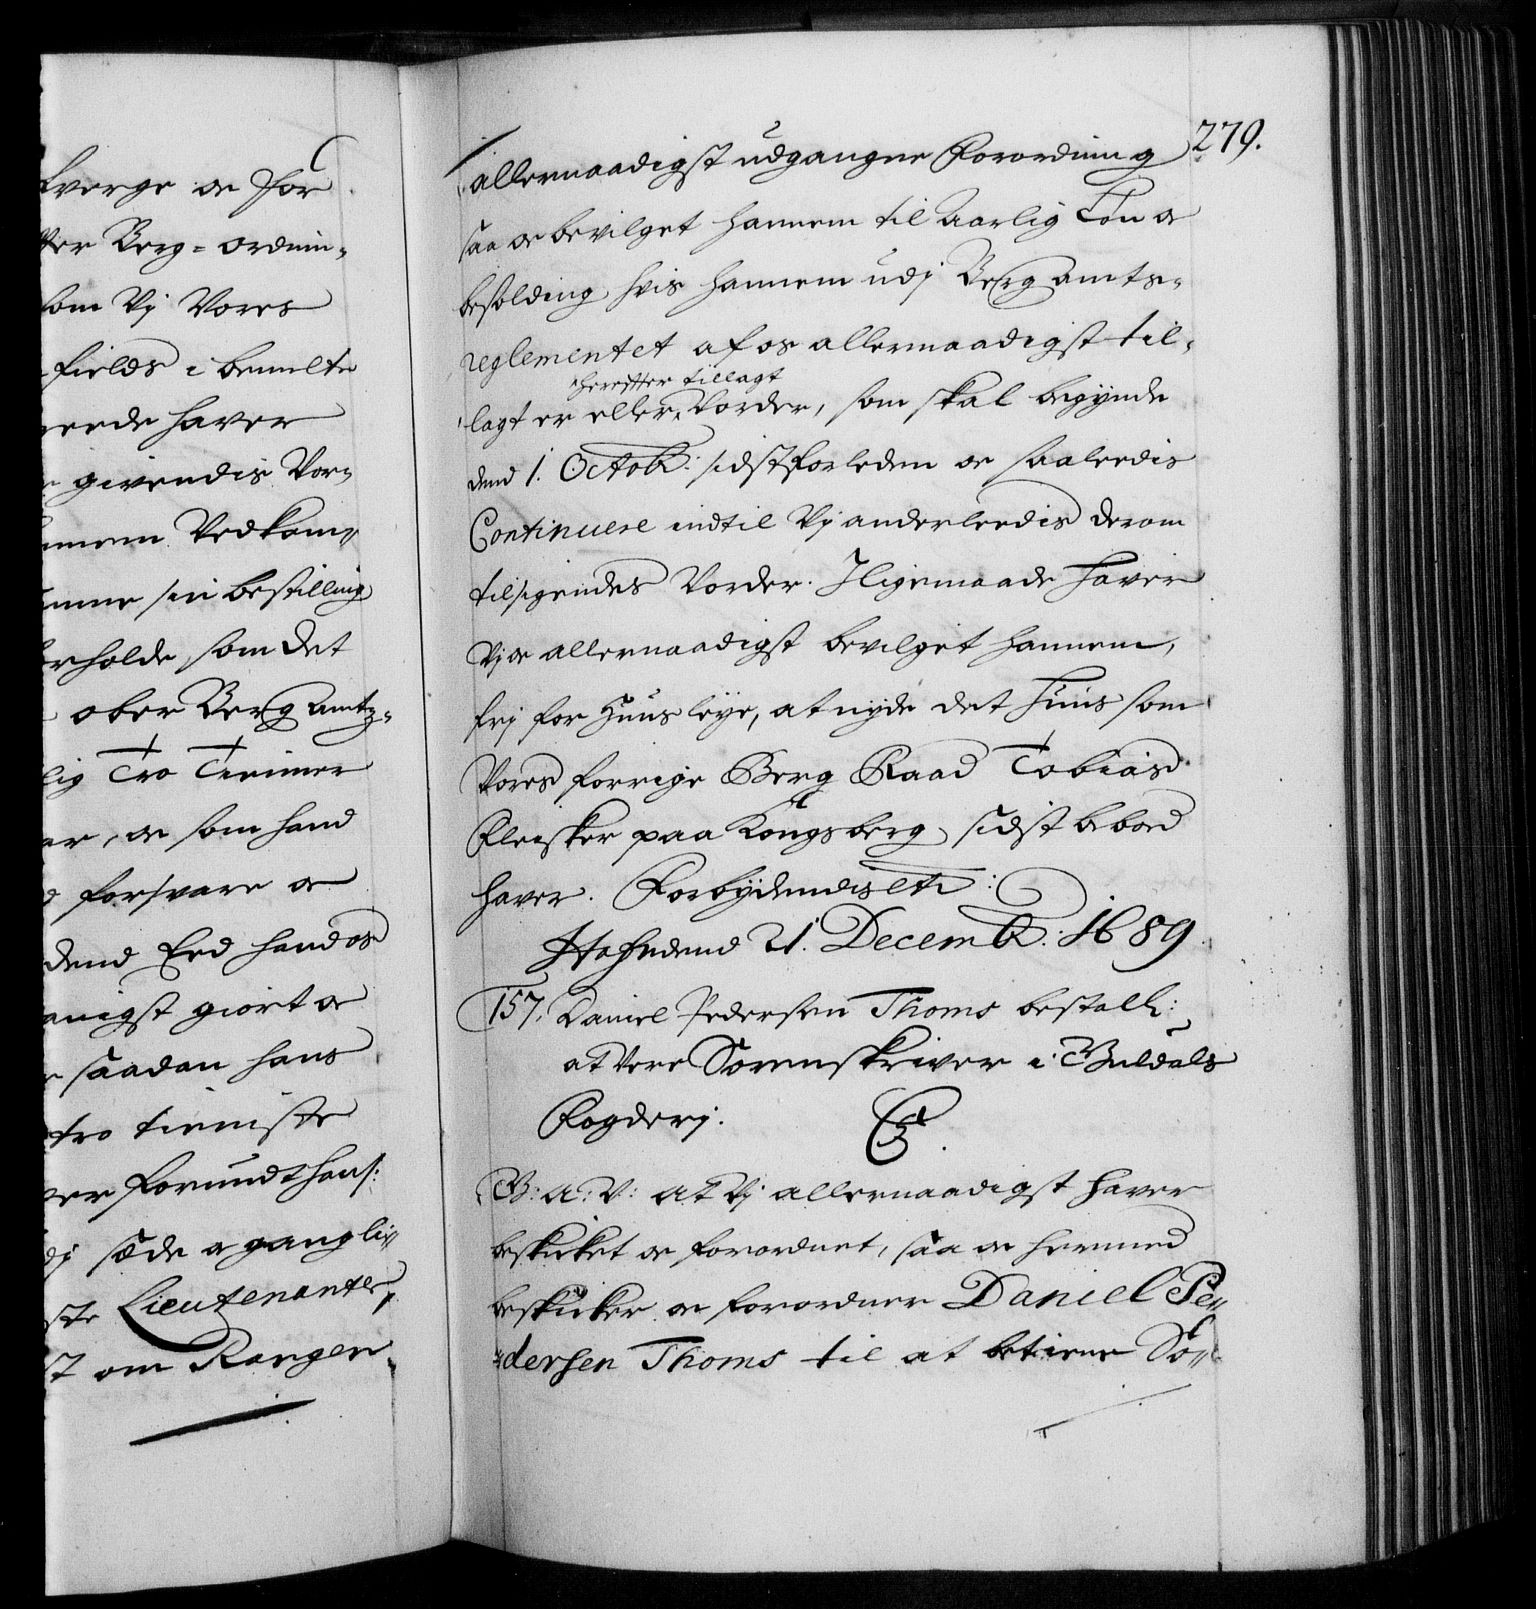 verge oc for
ter Berg-ordnin-
om Vj Vores
fields i bemelte
reede haver
givendis Vor-
nnem Vedkom-
mme sin bestilling
rholde, som det
ober Bergamtz-
lig Tro Tienner
ar, oc som hand
forsvare oc
dend Eed hand os
anigst giort oc
saadan hans
tro tieniste
er forundt haf:
dj sæde oc gangli-
ste Lieutenanter,
st om Rangen
279.
allernaadigst udgangne Forordning
saa oc bevilget hannem til Aarlig Løn oc
besolding hvis hannem udj Bergamts-
reglementet af os allernaadigst til-
herefter tillagt
lagt er eller Vorder, som skal begynde
dend 1. Octob: sidstforleden oc saaleedis
Continuere indtil Vj anderleedis derom
tilsigendes Vorder. Jligemaade haver
Vj oc allernaadigst bevilget hannem,
frj for Huusleye, at nyde det Huus som
Vores forrige Berg Raad Tobias
Pleisker paa Kongsberg sidst beboed
haver. Forbydendis etc:
Hafn dend 21. Decemb: 1689
157. Daniel Pedersen Thoms bestall:
at vere Sorenskriver i Guldals
Fogderj.
G: A: V: at Vj allernaadigst haver
beskicket oc forordnet, saa oc hermed
beskicker oc forordner Daniel Pe-
dersen Thoms til at betiene So-